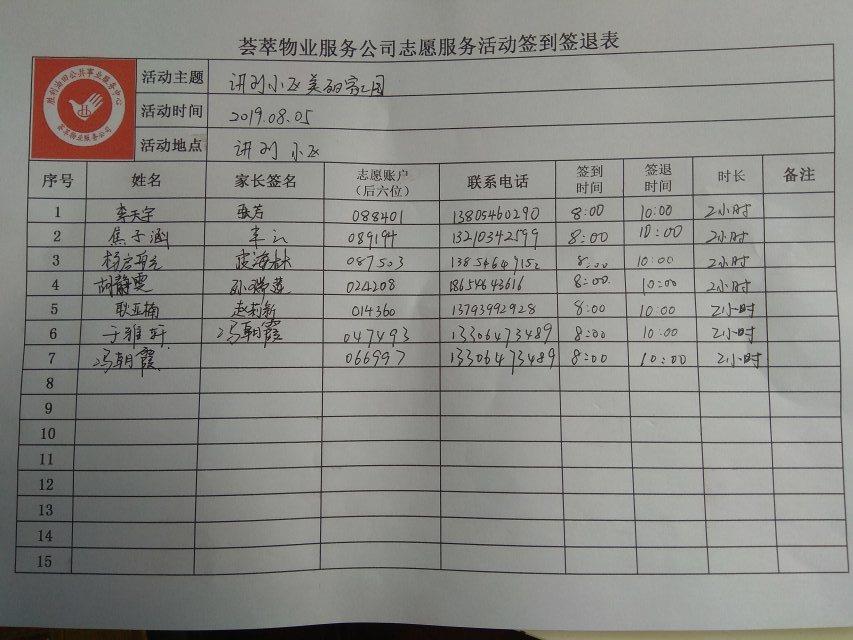 荟萃物业服务公司志愿服务活动签到签退表
胜利油田公共事业服务中心
荟萃物业服务公司
活动主题 小区美丽家园
活动时间 2019.08.05
活动地点 小区
序号 姓名 家长签名 志愿账户（后六位） 联系电话 签到时间 签退时间 时长 备注
1 李天宇 张芳 088401 13805460290 8:00 10:00 2小时
2 焦子涵 089194 13210342599 8:00 10:00 2小时
3 087503 13854649152 8:00 10:00 2小时
4 胡静雯 孙瑞莲 024208 18654643616 8:00 10:00 2小时
5 耿亚楠 赵莉新 014360 13793992928 8:00 10:00 2小时
6 于雅轩 冯朝霞 047493 13306473489 8:00 10:00 2小时
7 冯朝霞 066997 13306473489 8:00 10:00 2小时
8
9
10
11
12
13
14
15